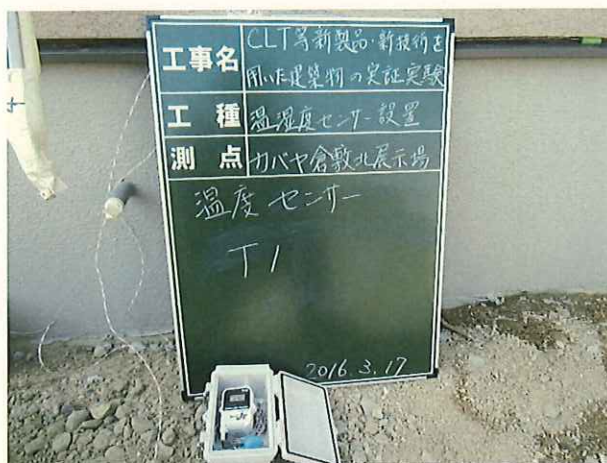 工事名
CLT等新製品・新技術を
用いた建築物の実証実験
工種
温湿度センサー設置
測点
カバヤ倉敷北展示場
温度センサー
T1
2016.3.17